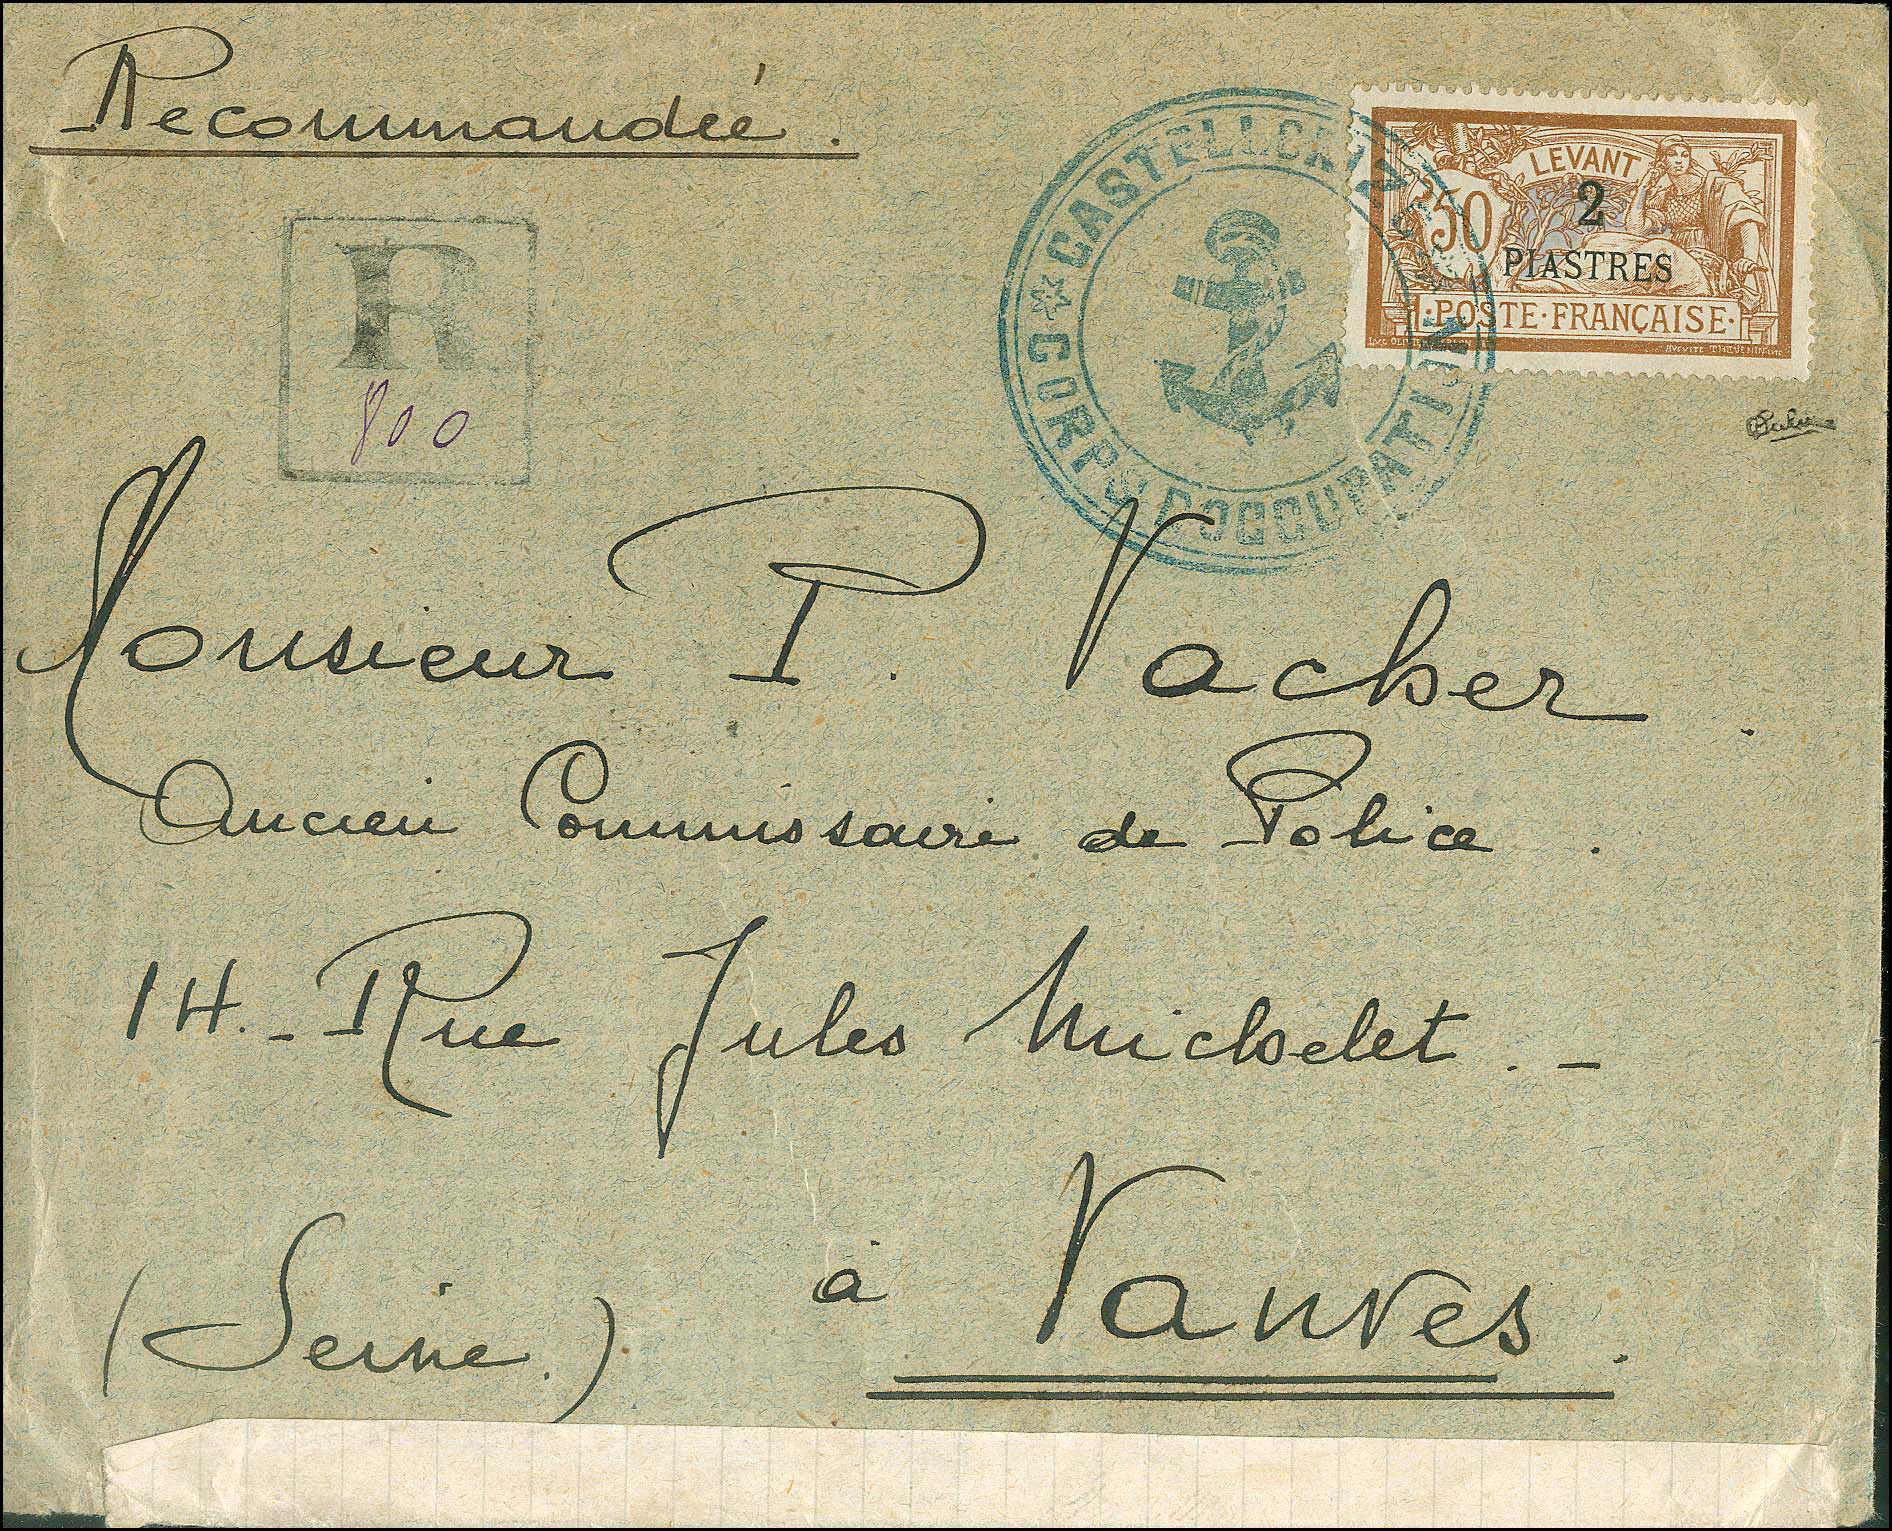 Recommandée.
R
800
CORPS D'OCCUPATION
LEVANT
50
2
PIASTRES
POSTE·FRANÇAISE
Monsieur P. Vacher
Ancien Commissaire de Police.
14.- Rue Jules Michelet.-
à Vanves.
(Seine.)